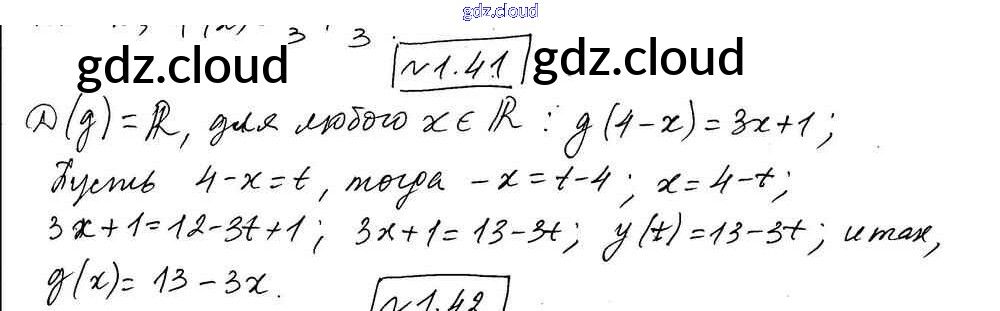 gdz.cloud
3 3.
gdz.cloud №1.41 gdz.cloud
D(g) = ℝ, для любого x ∈ ℝ : g(4-x) = 3x+1;
Пусть 4-x=t, тогда -x=t-4; x=4-t;
3x+1=12-3t+1; 3x+1=13-3t; y(t)=13-3t; итак,
g(x)= 13-3x.
№1.42